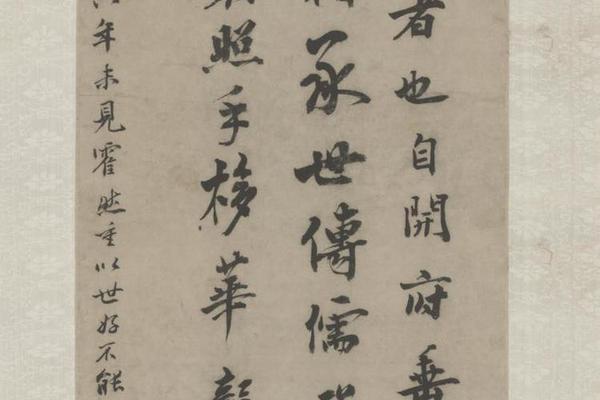 者也自開府垂
承世傳儒
照手移華
年未見霍然重以世好不能